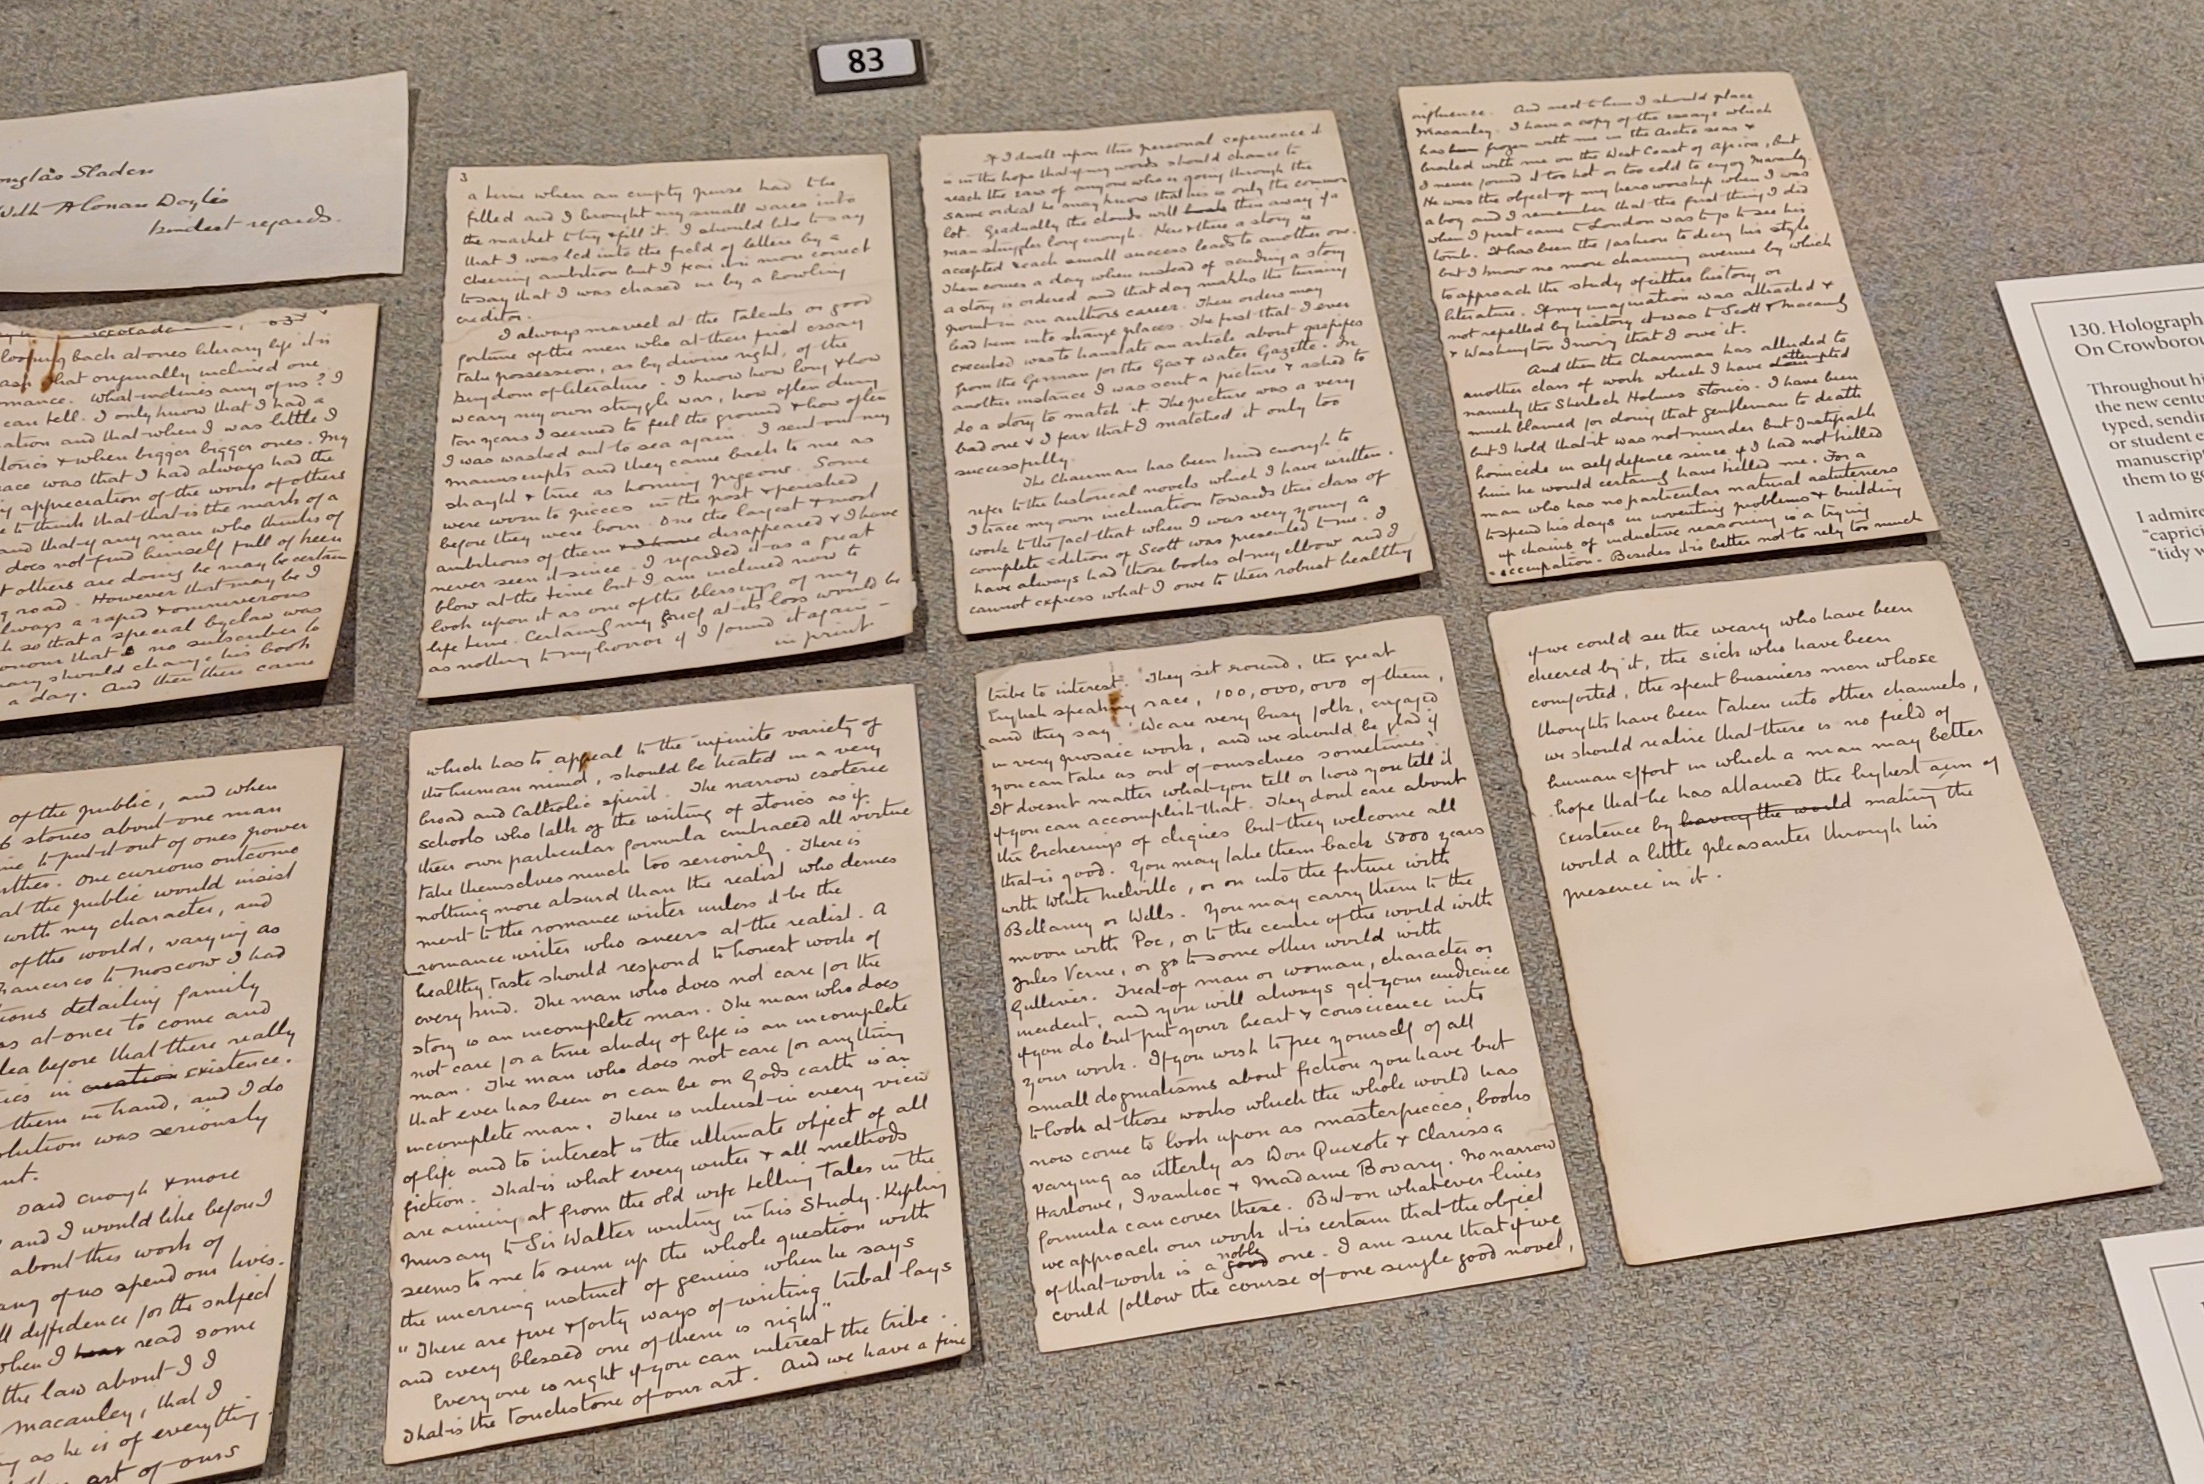 83
Douglas Sladen
With A Conan Doyle's
kindest regards.
looking back at ones literary life it is
that originally inclined one
romance. What inclines any of us? I
can tell. I only know that I had a
and that when I was little I
stories & when bigger bigger ones. My
was that I had always had the
appreciation of the work of others
to think that that is the mark of a
and that if any man who thinks of
does not find himself full of keen
others are doing he may be certain
road. However that may be I
always a rapid & omnivorous
so that a special byelaw was
honour that no subscriber to
should change his book
a day. And then there came
3
a time when an empty purse had to be
filled and I brought my small wares into
the market to try & fill it. I should like to say
that I was led into the field of letters by a
cheering ambition but I fear it is more correct
to say that I was chased in by a howling
creditor.
I always marvel at the talents or good
fortune of the men who at their first essay
take possession, as by divine right, of the
kingdom of literature. I know how long & how
weary my own struggle was, how often during
ten years I seemed to feel the ground & how often
I was washed out to sea again. I sent out my
manuscripts and they came back to me as
straight & true as homing pigeons. Some
were worn to pieces in the post & perished
before they were born. One the largest & most
ambitious of them & I have disappeared & I have
never seen it since. I regarded it as a great
blow at the time but I am inclined now to
look upon it as one of the blessings of my
life time. Certainly my grief at its loss would be
as nothing to my horror if I found it again -
in print
& I dwell upon this personal experience it
is in the hope that if my words should chance to
reach the ear of anyone who is going through the
same ordeal he may know that his is only the common
lot. Gradually the clouds will thin away if a
man struggles long enough. Here & there a story is
accepted & each small success leads to another one.
Then comes a day when instead of sending a story
a story is ordered and that day marks the turning
point in an authors career. These orders may
lead him into strange places. The first that I ever
executed was to translate an article about gaspipes
from the German for the Gas & Water Gazette. In
another instance I was sent a picture & asked to
do a story to match it. The picture was a very
bad one & I fear that I matched it only too
successfully.
The Chairman has been kind enough to
refer to the historical novels which I have written.
I trace my own inclination towards this class of
work to the fact that when I was very young a
complete edition of Scott was presented to me. I
have always had those books at my elbow and I
cannot express what I owe to their robust healthy
influence. And next to him I should place
Macauley. I have a copy of the essays which
has been frozen with me in the Arctic seas &
broiled with me on the West Coast of Africa, but
I never found it too hot or too cold to enjoy Macauley.
He was the object of my hero worship when I was
a boy and I remember that the first thing I did
when I first came to London was to go to see his
tomb. It has been the fashion to decry his style
but I know no more charming avenue by which
to approach the study of either history or
literature. If my imagination was attracted &
not repelled by history it was to Scott & Macauley
& Washington Irving that I owe it.
And then the Chairman has alluded to
another class of work which I have attempted
namely the Sherlock Holmes stories. I have been
much blamed for doing that gentleman to death
but I hold that it was not murder but Justifiable
homicide in self defence since if I had not killed
him he would certainly have killed me. For a
man who has no particular natural astuteness
to spend his days in inventing problems & building
up chains of inductive reasoning is a trying
occupation. Besides it is better not to rely too much
of the public, and when
6 stories about one man
to put it out of ones power
further. One curious outcome
that the public would insist
with my character, and
of the world, varying as
Francisco to Moscow I had
detailing family
at once to come and
idea before that there really
in creation existence.
them in hand, and I do
solution was seriously
said enough & more
and I would like before I
about this work of
many of us spend our lives.
diffidence for the subject
when I hear read some
the law about I
Macauley, that I
as he is of everything.
art of ours
which has to appeal to the infinite variety of
the human mind, should be treated in a very
broad and Catholic spirit. The narrow esoteric
schools who talk of the writing of stories as if
their own particular formula embraced all virtue
take themselves much too seriously. There is
nothing more absurd than the realist who denies
merit to the romance writer unless it be the
romance writer who sneers at the realist. A
healthy taste should respond to honest work of
every kind. The man who does not care for the
story is an incomplete man. The man who does
not care for a true study of life is an incomplete
man. The man who does not care for anything
that ever has been or can be on Gods earth is an
incomplete man. There is interest in every view
of life and to interest is the ultimate object of all
fiction. That is what every writer & all methods
are aiming at from the old wife telling Tales in the
nursary to Sir Walter writing in his Study. Kipling
seems to me to sum up the whole question with
the unerring instinct of genius when he says
"There are five & forty ways of writing tribal lays
and every blessed one of them is right"
Everyone is right if you can interest the tribe.
That is the touchstone of our art. And we have a fine
tribe to interest. They sit round, the great
English speaking race, 100,000,000 of them,
and they say "We are very busy folk, engaged
in very prosaic work, and we should be glad if
you can take us out of ourselves sometimes."
It doesnt matter what you tell or how you tell it
if you can accomplish that. They dont care about
the bickerings of cliques but they welcome all
that is good. You may take them back 5000 years
with White Melville, or on into the future with
Bellamy or Wells. You may carry them to the
moon with Poe, or to the centre of the world with
Jules Verne, or go to some other world with
Gulliver. Treat of man or woman, character or
incident, and you will always get your audience
if you do but put your heart & conscience into
your work. If you wish to free yourself of all
small dogmatisms about fiction you have but
to look at those works which the whole world has
now come to look upon as masterpieces, books
varying as utterly as Don Quixote & Clarissa
Harlowe, Ivanhoe & Madame Bovary. No narrow
formula can cover these. But on whatever lines
we approach our work it is certain that the object
of that work is a good noble one. I am sure that if we
could follow the course of one single good novel,
if we could see the weary who have been
cheered by it, the sick who have been
comforted, the spent business men whose
thoughts have been taken into other channels,
we should realise that there is no field of
human effort in which a man may better
hope that he has attained the highest aim of
existence by having the world making the
world a little pleasanter through his
presence in it.
130. Holograph
On Crowborou
Throughout hi
the new centu
typed, sendin
or student e
manuscript
them to g
I admire
"capric
"tidy w